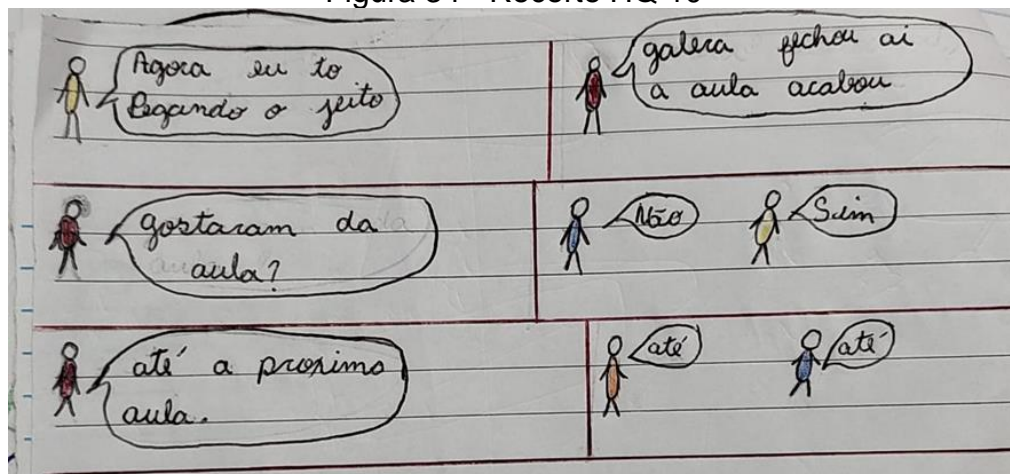 Agora eu to
Pegando o jeito
galera fechou ai
a aula acabou
gostaram da
aula?
Não
Sim
até a proximo
aula.
até
até